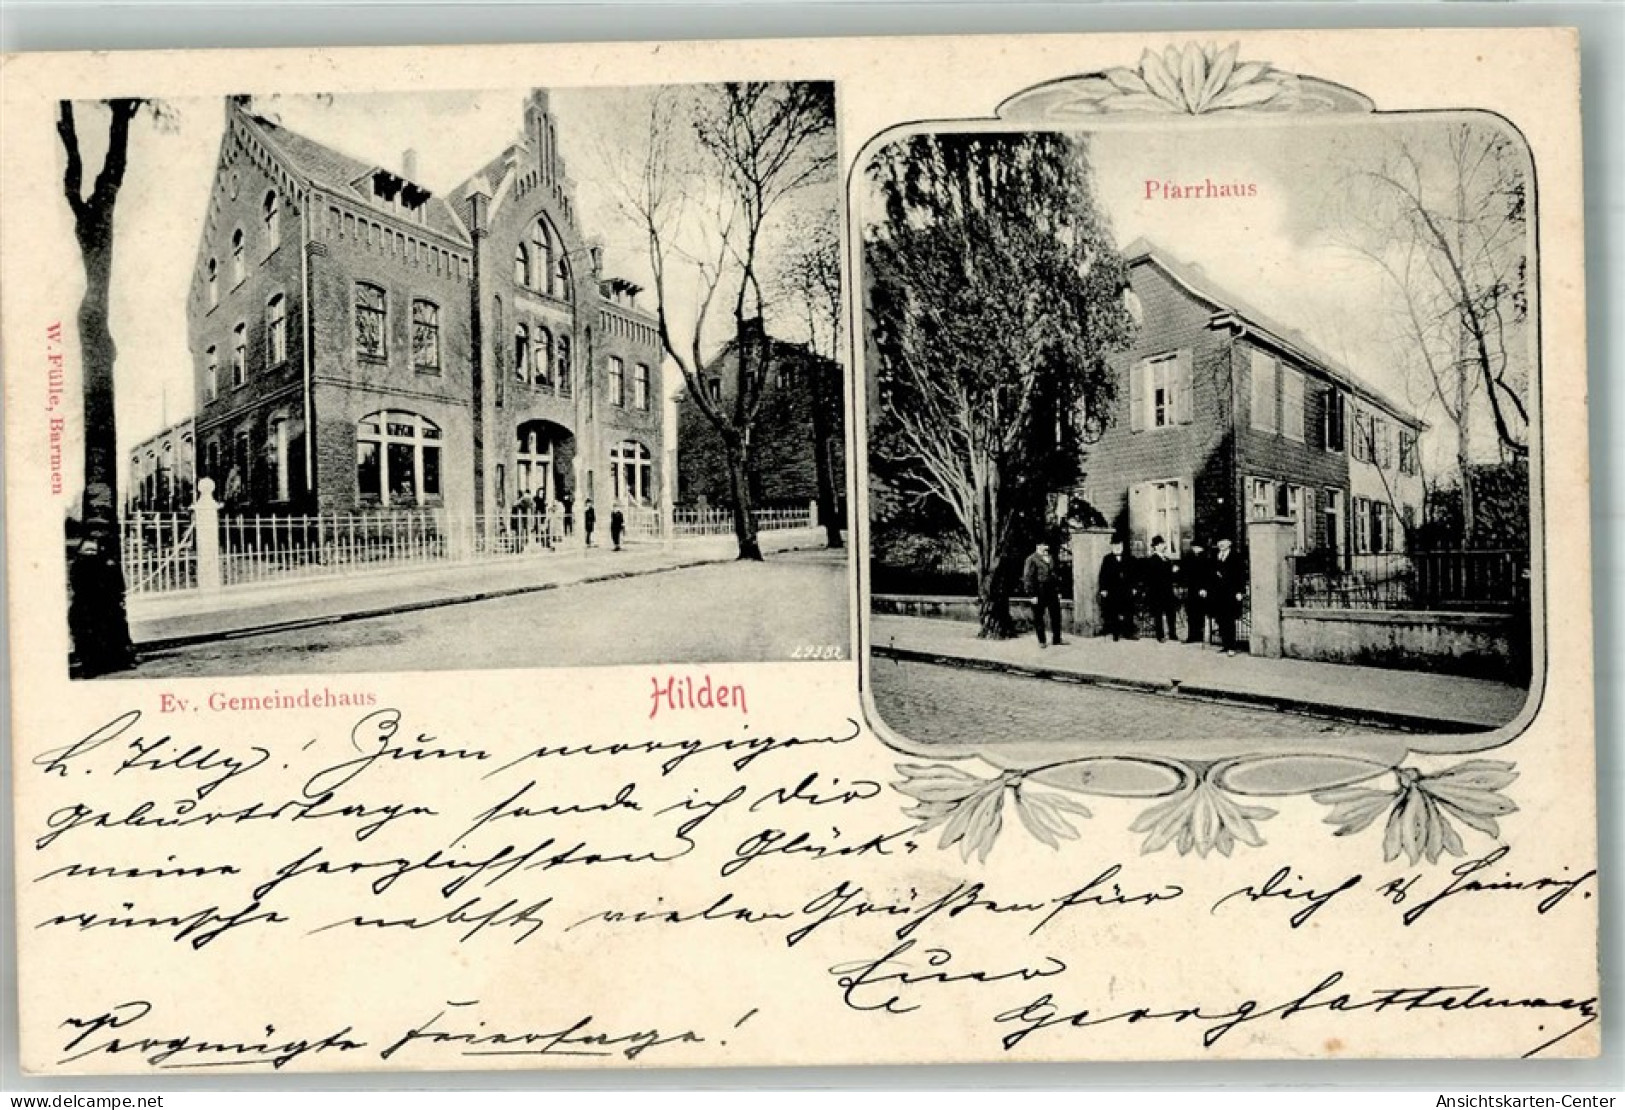 Pfarrhaus
W. Fülle, Barmen
29382
Ev. Gemeindehaus
Hilden
L. Tilly! Zum morgigen
Geburtstage sende ich Dir
meine herzlichsten Glück-
wünsche nebst vielen Grüßen für Dich & Heinrich.
Euer
Georg
Vergnügte Feiertage!
www.delcampe.net
Ansichtskarten-Center